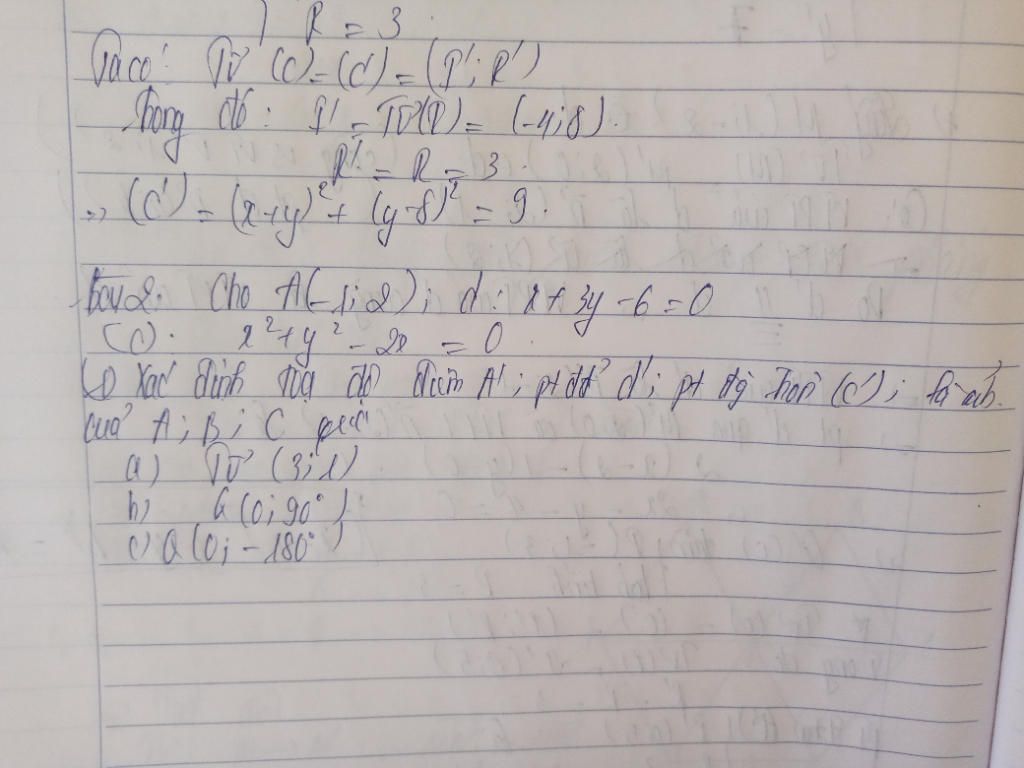 R = 3
Ta có: Tv (C) = (C') = (I'; R')
Trong đó: I' = Tv(I) = (-4;8).
R' = R = 3
=> (C') = (x+y)² + (y-8)² = 9.
Bài 2: Cho A(-1;2); d: x + 3y - 6 = 0
(C): x² + y² - 2x = 0
Xác định tọa độ điểm A'; pt đt d'; pt đg tròn (C'); là ảnh
của A; B; C qua
a) Tv (3;1)
b) Q (0;90°)
c) Q (0; -180°)